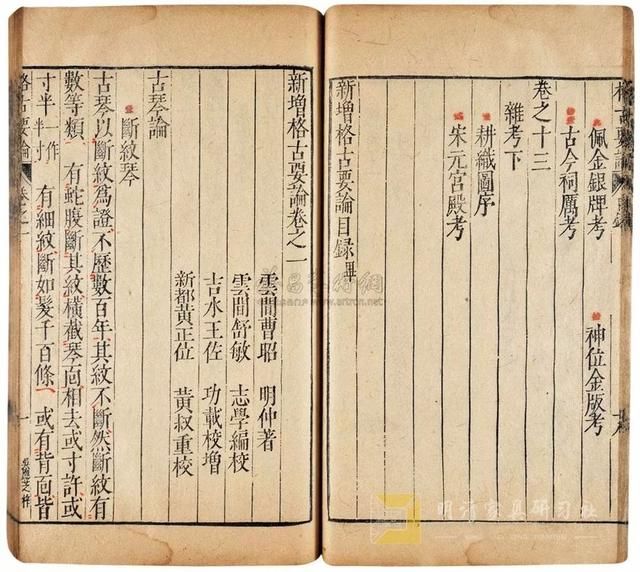 格古要論 目録 十八
佩金銀牌考 神位金版考
古今祠厲考
卷之十三
雜考下
耕織圖序
宋元宮殿考
新增格古要論目録畢
新增格古要論卷之一
雲間曹昭 明仲著
雲間舒敏 志學編校
吉水王佐 功載校增
新都黃正位 黃叔重校
古琴論
斷紋琴
古琴以斷紋為證不歷數百年其紋不斷然斷紋有
數等類 有蛇腹斷其紋橫截琴靣相去或寸許或
寸半 一作半寸 有細紋斷如髮千百條 或有背靣皆
格古要論 卷之一 一
www.artron.net
明清家具研习社